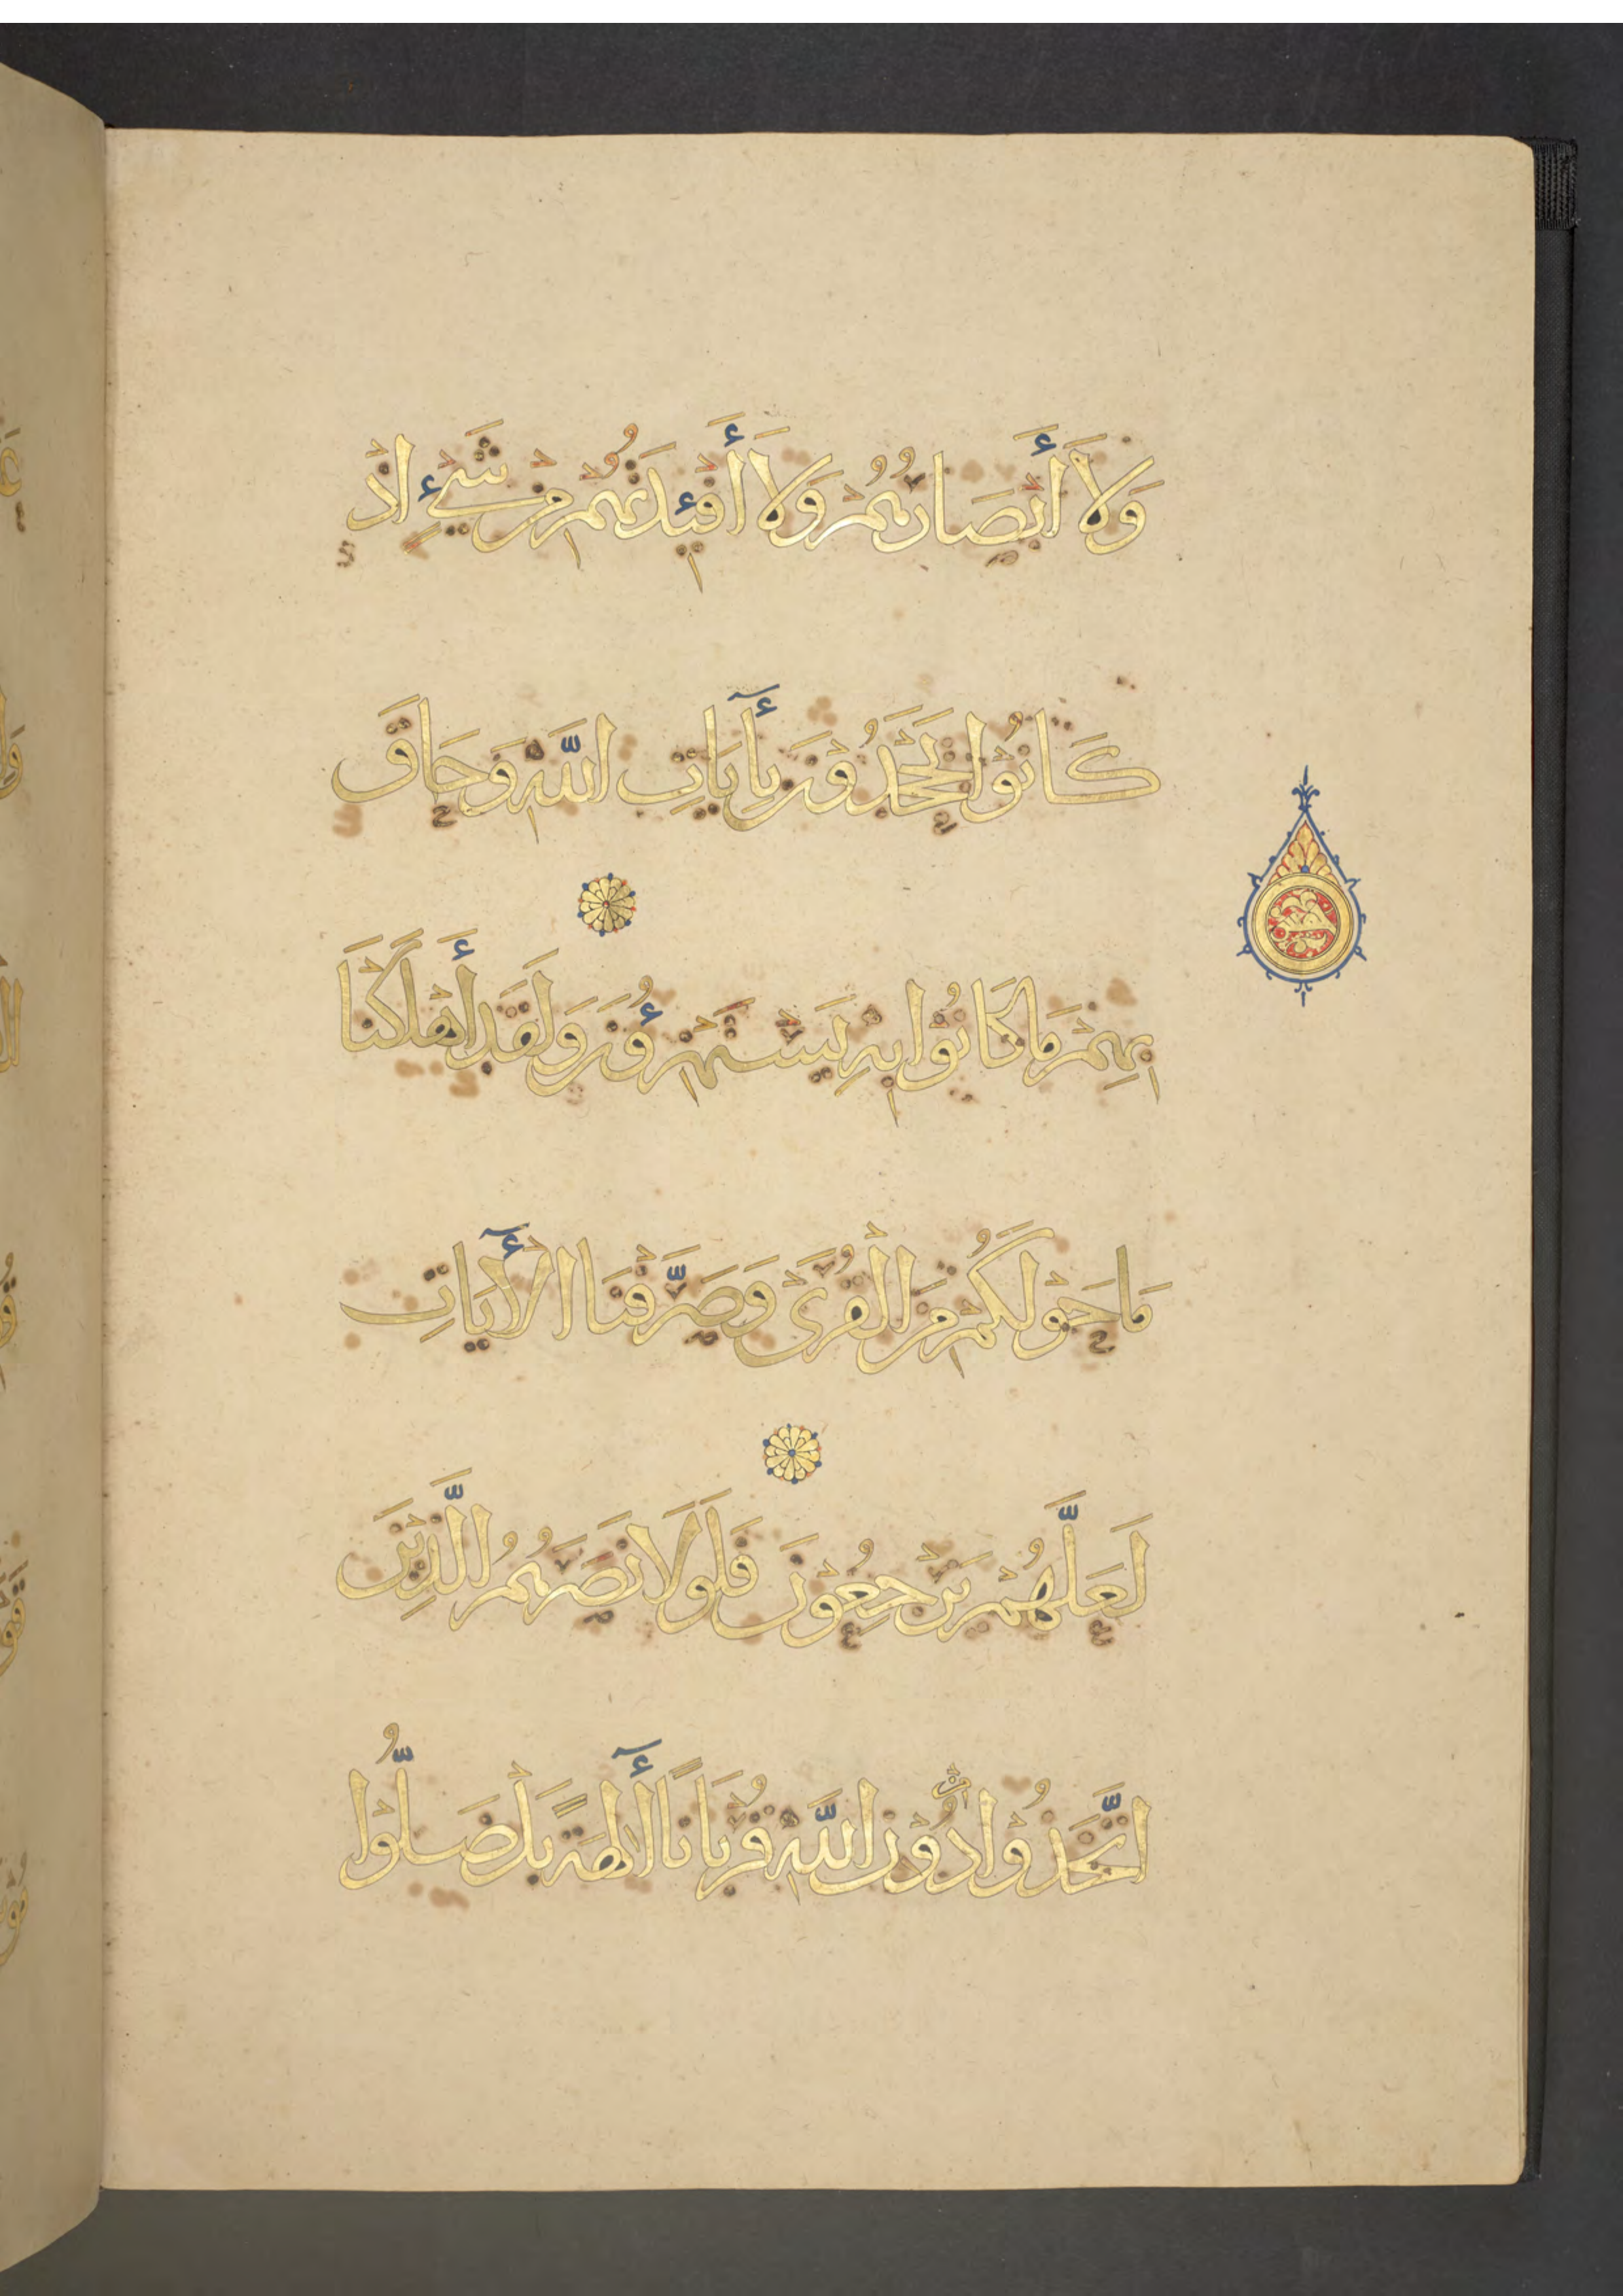 وَلَا أَبْصَارُهُمْ وَلَا أَفْئِدَتُهُمْ مِنْ شَيْءٍ إِذْ
كَانُوْا يَجْحَدُوْنَ بِأٓيَاتِ اللَّهِ وَحَاقَ
بِهِمْ مَا كَانُوْا بِهِ يَسْتَهْزِءُوْنَ وَلَقَدْ أَهْلَكْنَا
مَا حَوْلَكُمْ مِنَ الْقُرَىٰ وَصَرَّفْنَا الْأٓيَاتِ
لَعَلَّهُمْ يَرْجِعُوْنَ فَلَوْلَا نَصَرَهُمُ الَّذِيْنَ
اتَّخَذُوْا مِنْ دُوْنِ اللَّهِ قُرْبَانًا أٓلِهَةً بَلْ ضَلُّوْا